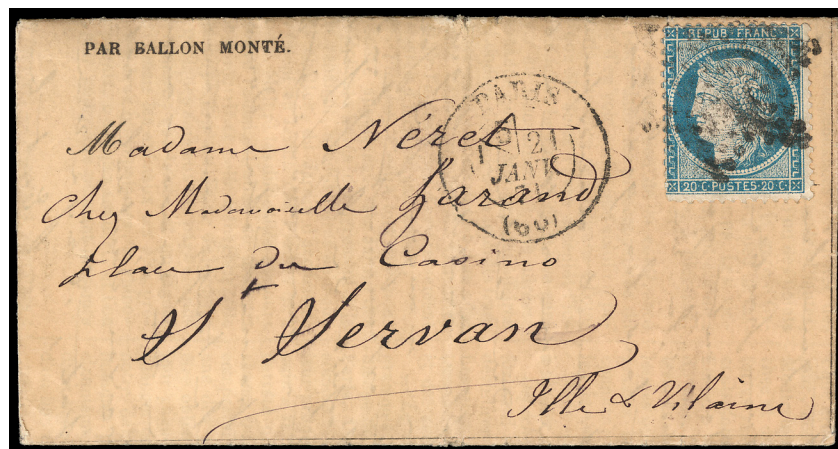 PAR BALLON MONTÉ.
REPUB. FRANC.
20·C·POSTES·20·C
PARIS
21
JANV.
71
(60)
Madame Néret
Chez Mademoiselle Harand
place du Casino
St Servan
Ille & Vilaine